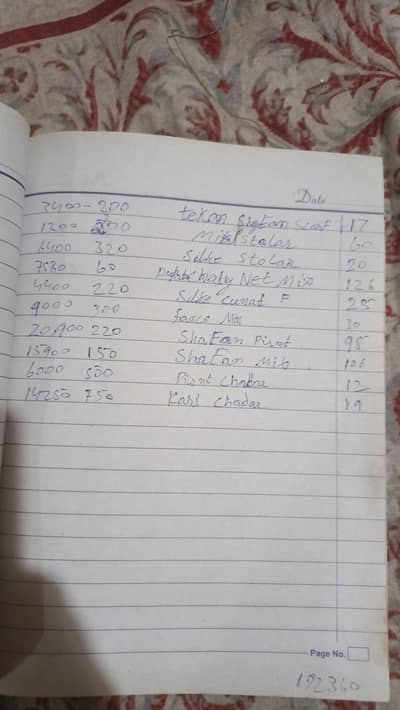 Date
3400 - 200 tekon Shafan Scarf 17
1200 200 Mix Stolar 60
6400 320 Silke Stolar 20
7560 60 Net Mix 126
4400 220 Silke cunat F 25
9000 300 Mix 30
20,900 220 Shafan Pirnt 95
15900 150 Shafan Mix 106
6000 500 Pirnt Chadar 12
14250 750 Karl Chadar 19
Page No.
192360